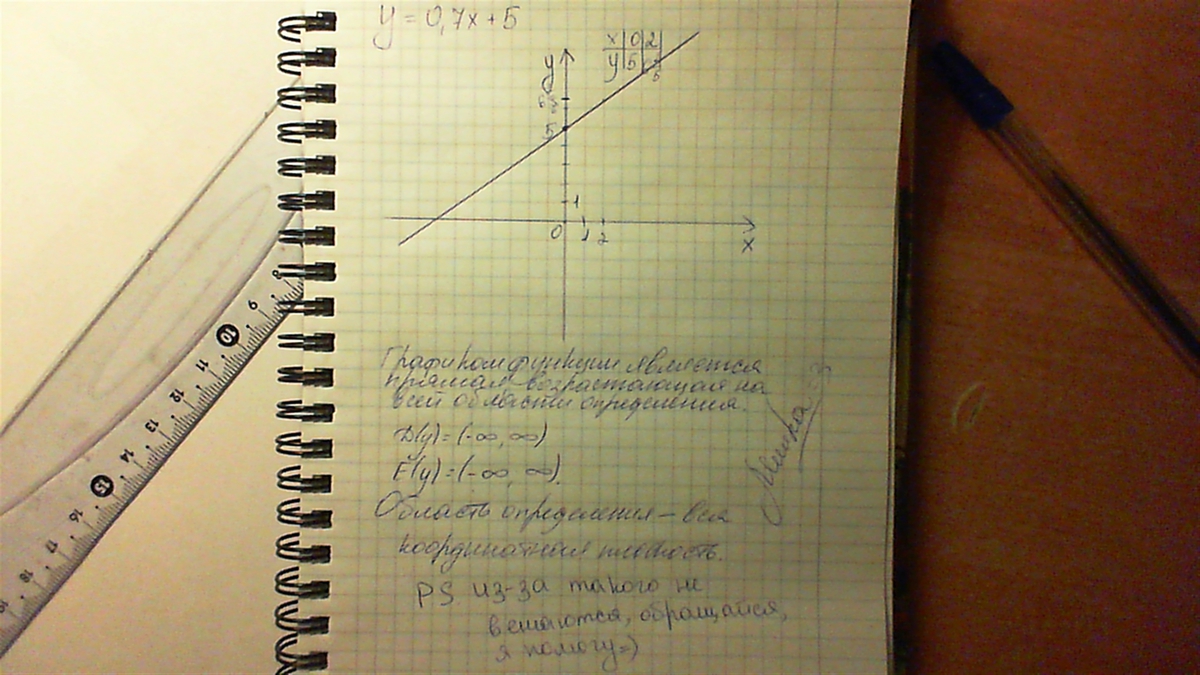 y = 0,7x+5
x 0 2
y 5
y
5
1
0 1 2
x
Графиком функции является
прямая возрастающая на
всей области определения.
D(y)=(-∞,∞)
E(y)=(-∞,∞).
Область определения – вся
координатная плоскость.
PS из-за такого не
вешаются, обращайся,
я помогу=)
9
10
11
12
13
14
15
16
17
18